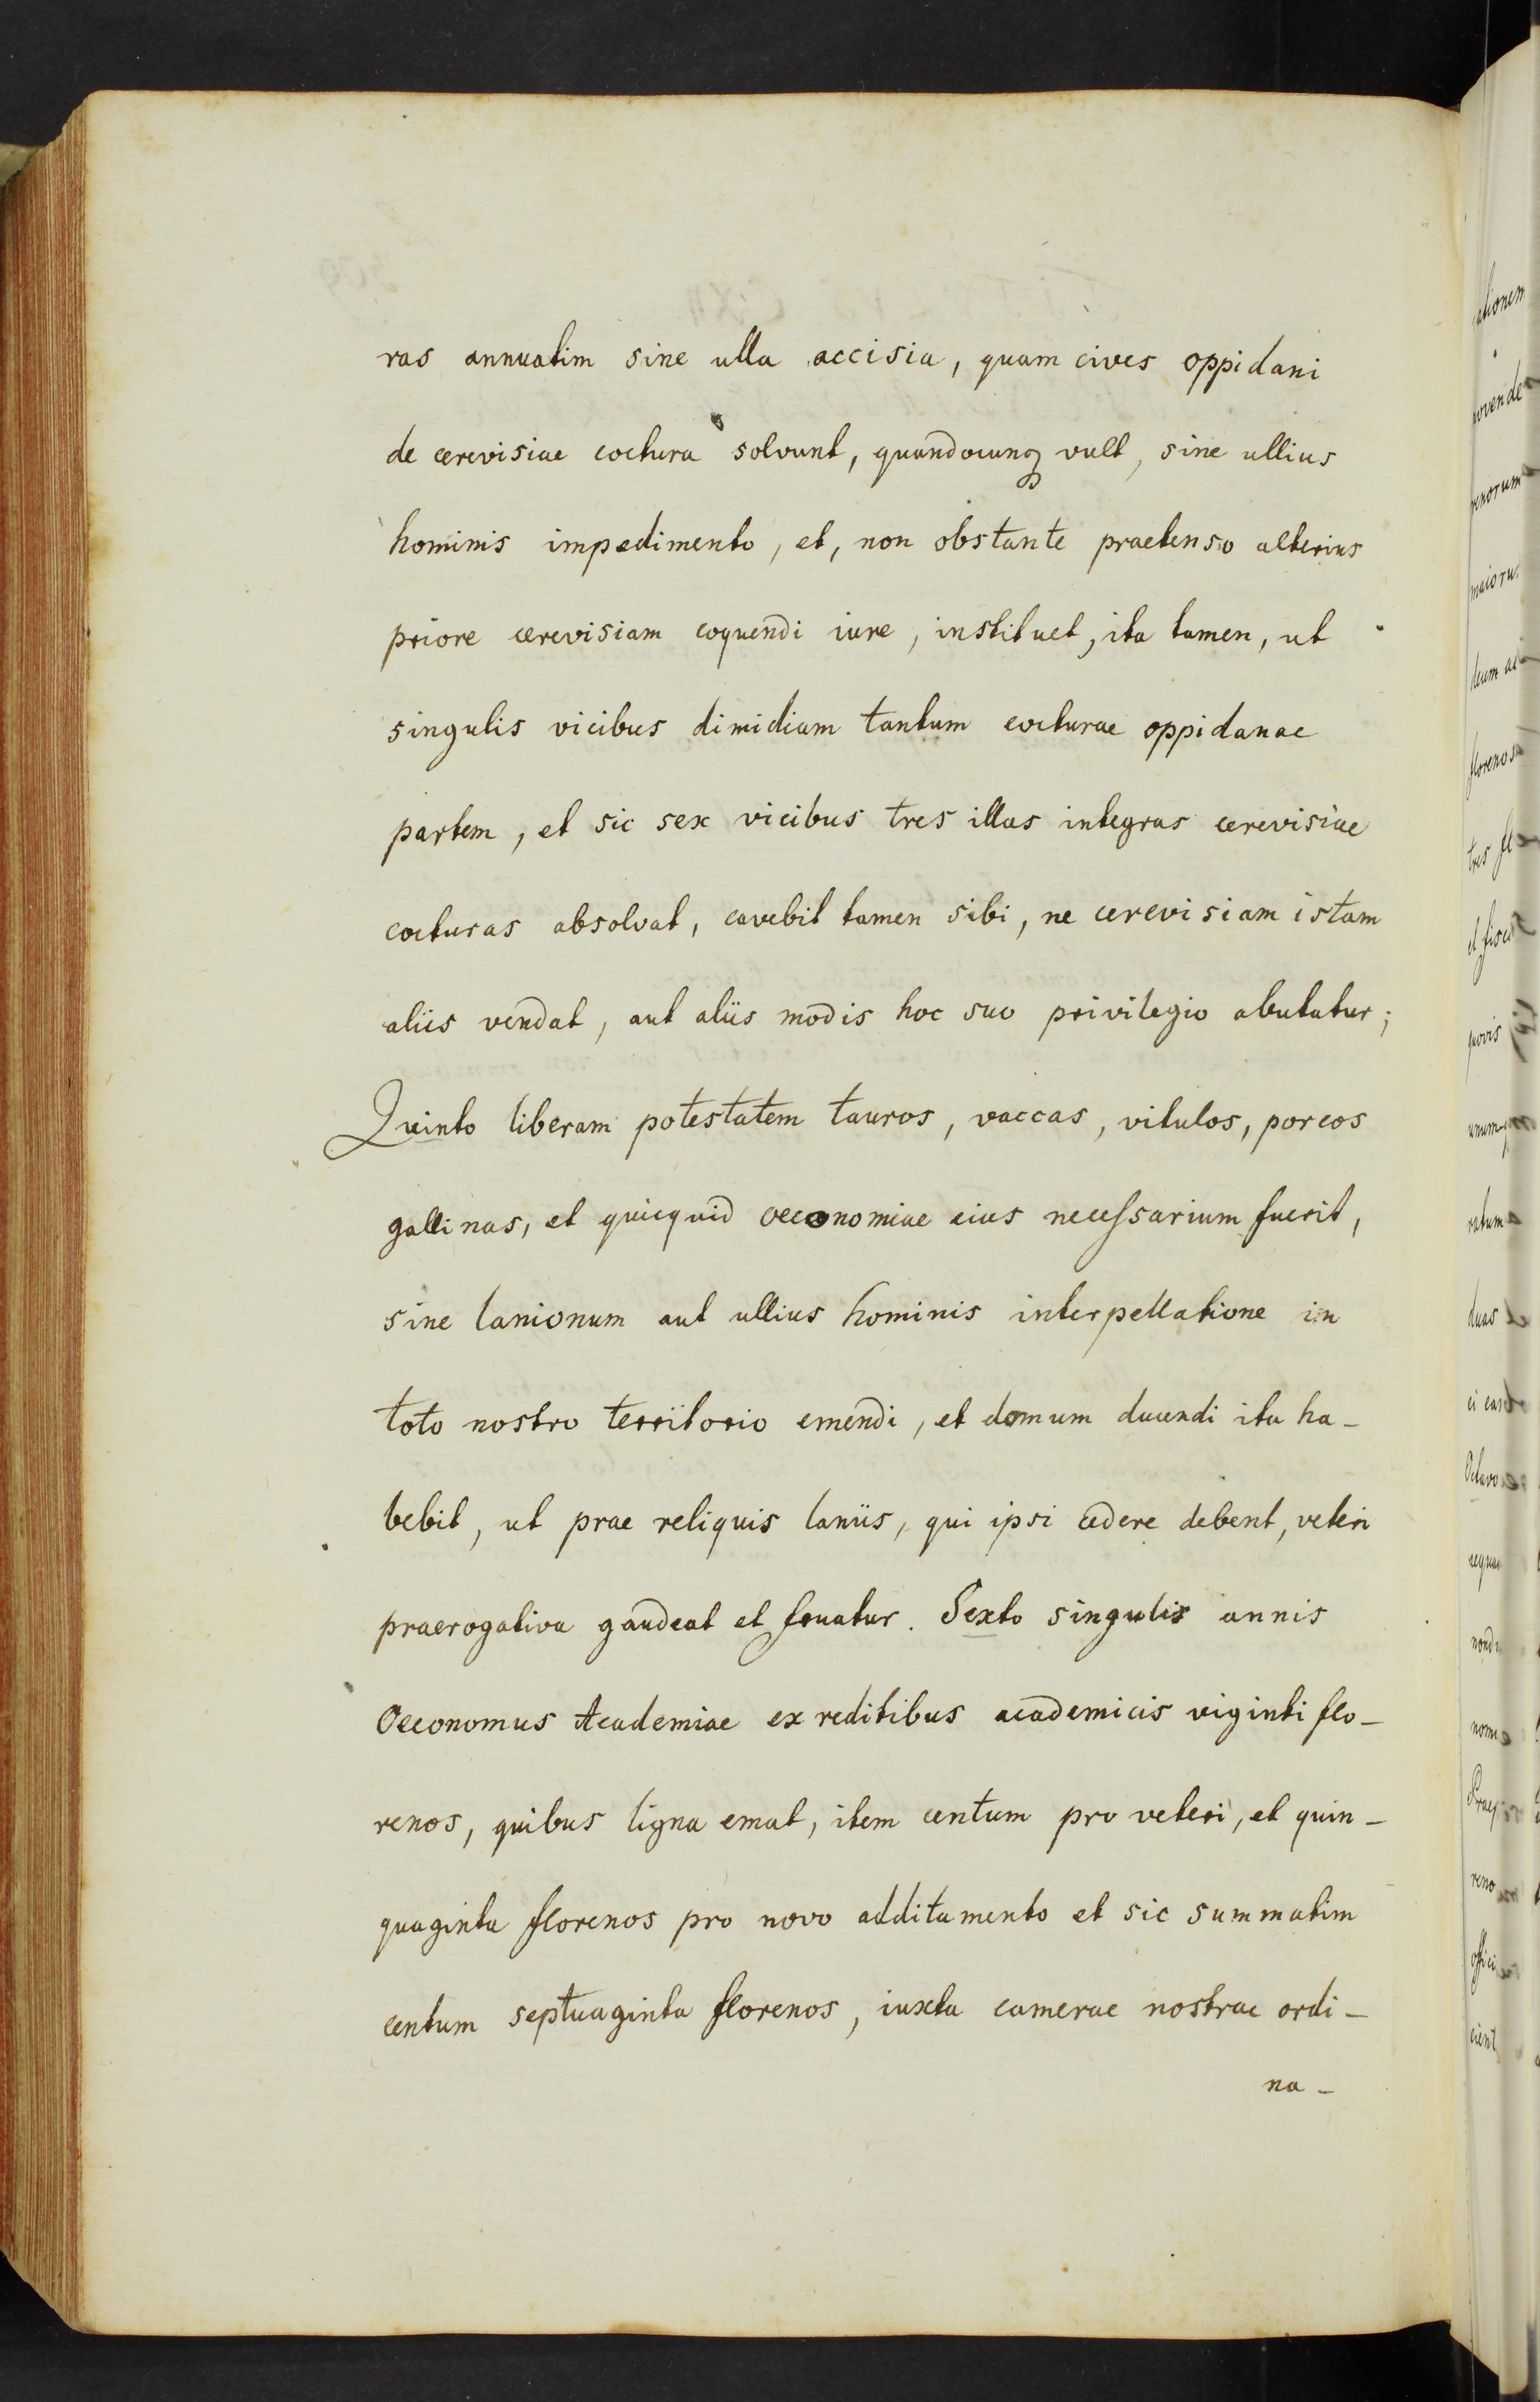 ras annuatim sine ulla accisia, quam cives oppidani
de cerevisiae coctura solvunt, quandocunq vult, sine ullius
hominis impedimento, et, non obstante praetenso alterius
priore cerevisiam coquendi iure, instituet, ita tamen, ut
singulis vicibus dimidiam tantum cocturae oppidanae
partem, et sic sex vicibus tres illas integras cerevisiae
cocturas absolvat, cavebit tamen sibi, ne cerevisiam istam
aliis vendat, aut aliis modis hoc suo privilegio abutatur;
Quinto liberam potestatem tauros, vaccas, vitulos, porcos
gallinas, et quicquid oeconomiae eius necessarium fuerit,
sine lanionum aut ullius hominis interpellatione in
toto nostro territorio emendi, et domum ducendi ita ha-
bebit, ut prae reliquis laniis, qui ipsi cedere debent, veteri
praerogativa gaudeat et fruatur. Sexto singulis annis
Oeconomus Academiae ex reditibus academicis viginti flo-
renos, quibus ligna emat, item centum pro veteri, et quin-
quaginta florenos pro novo additamento et sic summatim
centum septuaginta florenos, iuxta camerae nostrae ordi-
na-